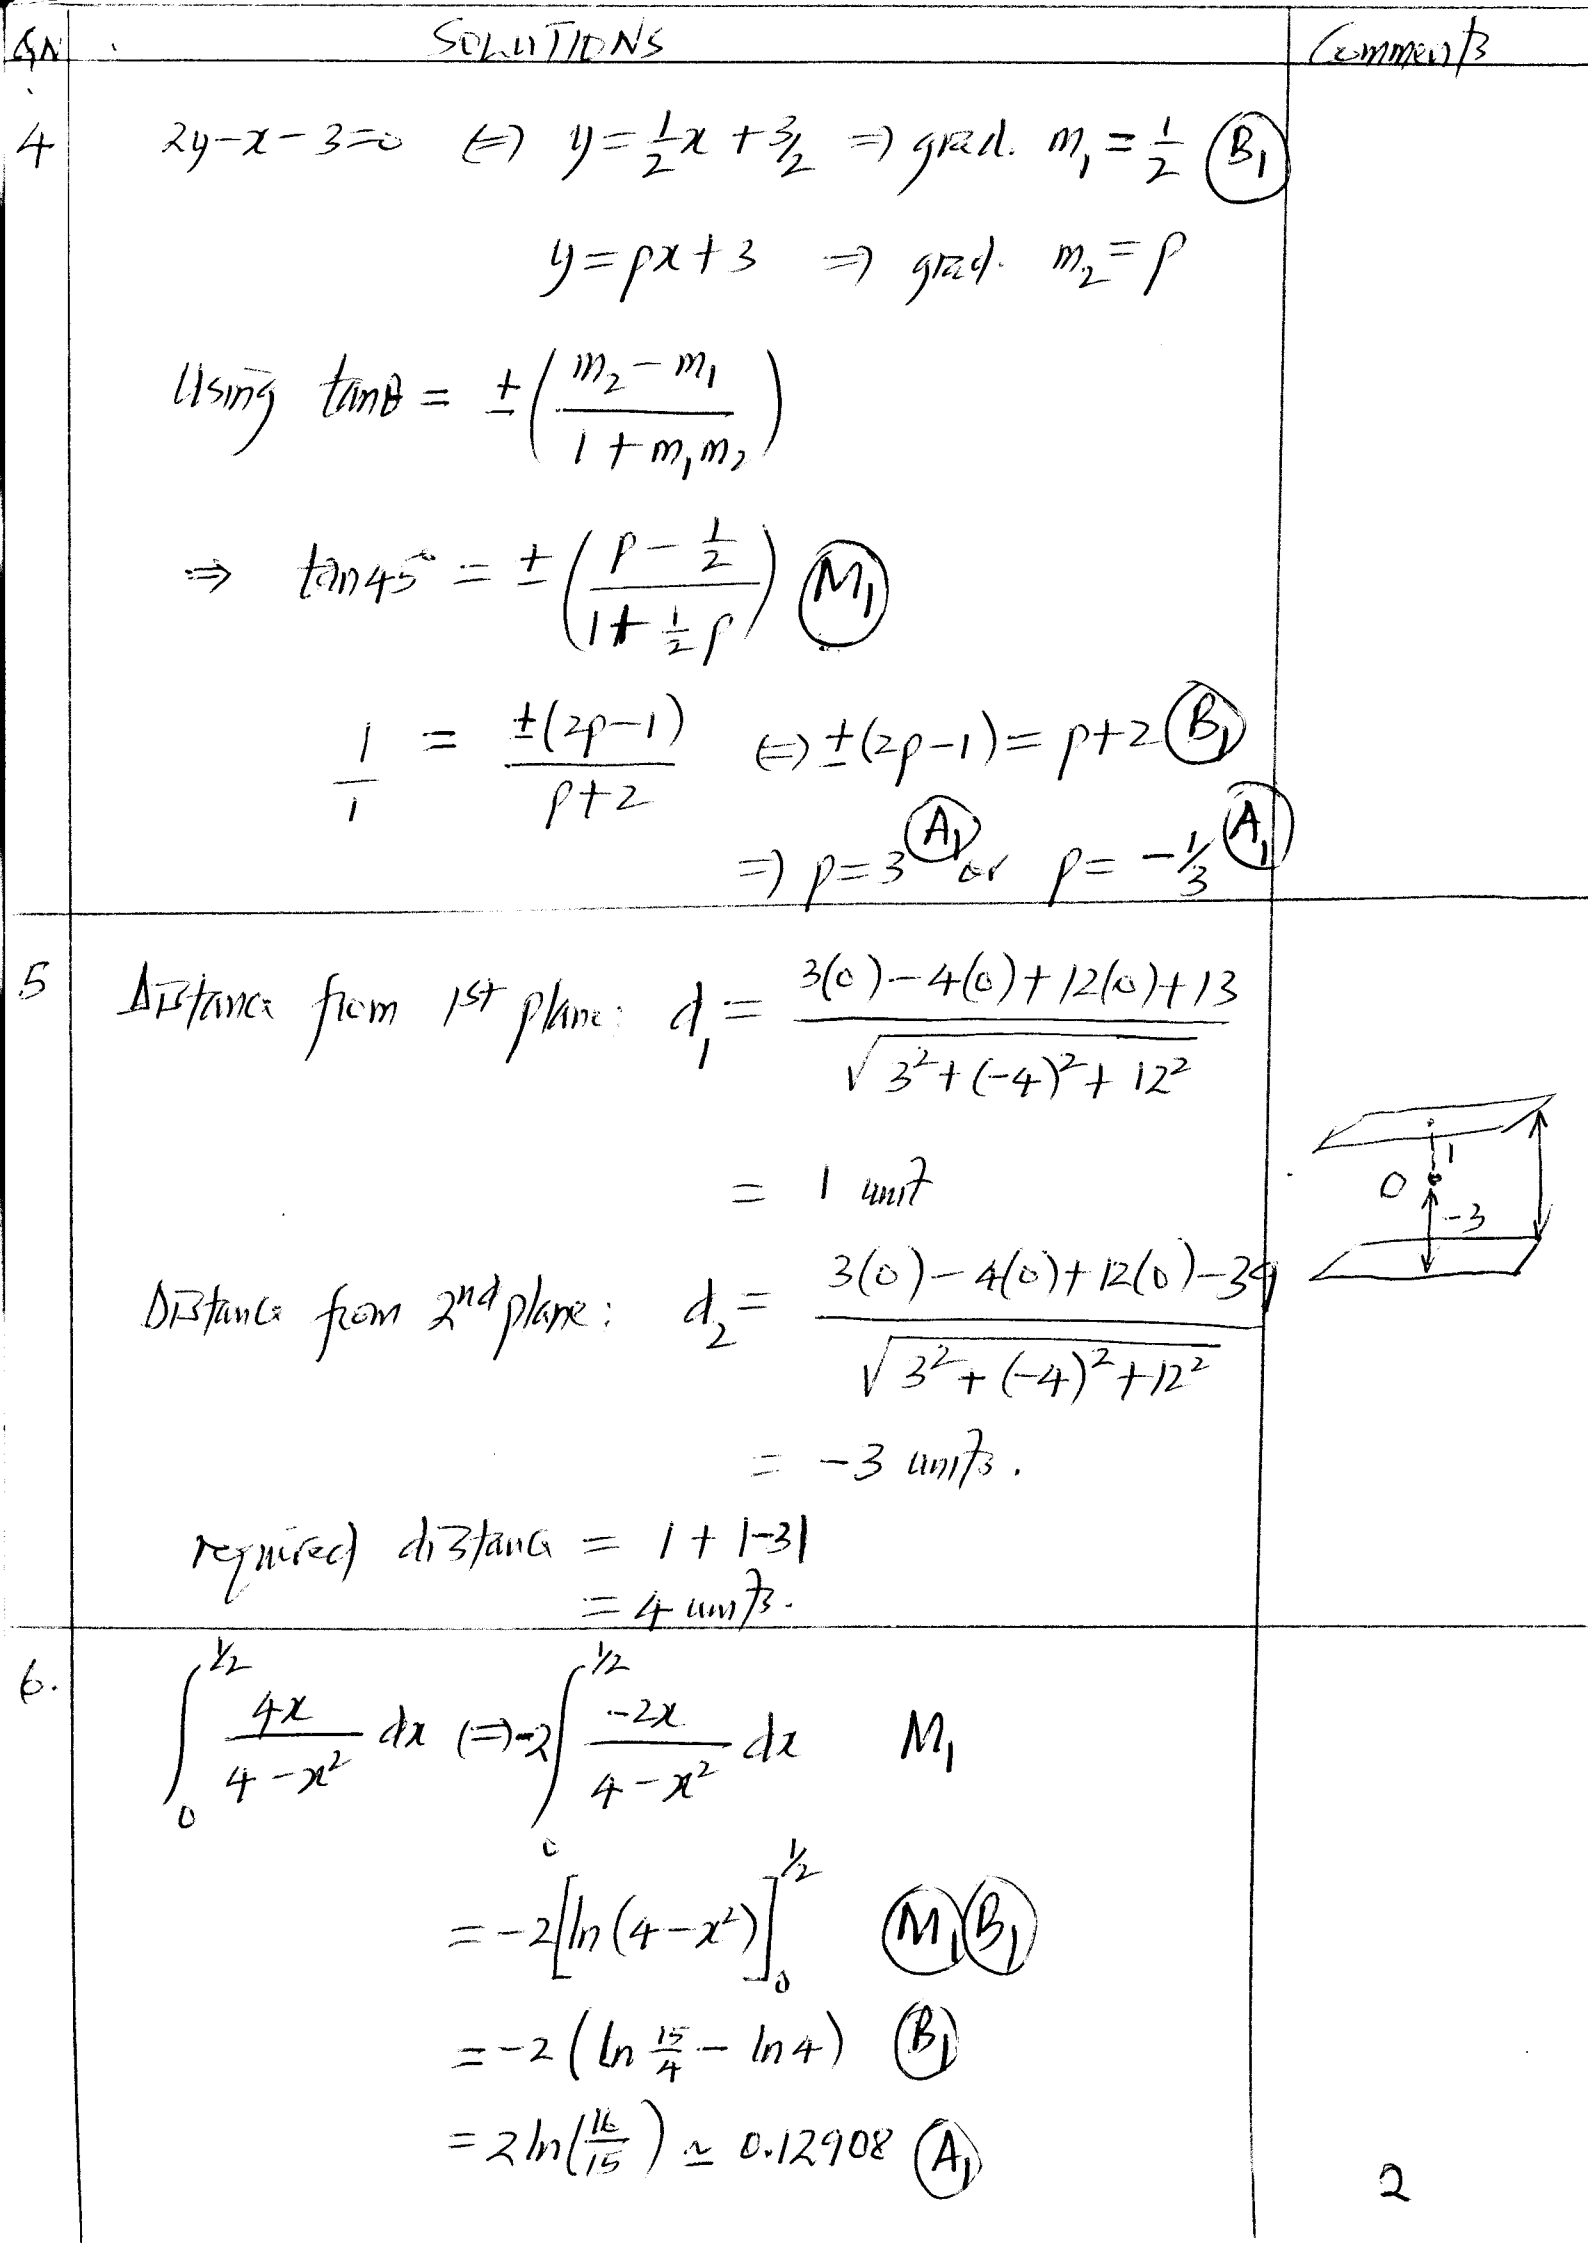 QN. SOLUTIONS Comments
4 2y-x-3=0 ⇔ y=1/2x+3/2 ⇒ grad. m₁=1/2 B₁
y=px+3 ⇒ grad. m₂=p
Using tanθ = ±((m₂-m₁)/(1+m₁m₂))
⇒ tan45° = ±((p-1/2)/(1+1/2p)) M₁
1/1 = ±(2p-1)/(p+2) ⇔ ±(2p-1)=p+2 B₁
⇒ p=3 A₁ or p=-1/3 A₁
5 Distance from 1st plane: d₁ = (3(0)-4(0)+12(0)+13)/√(3²+(-4)²+12²)
= 1 unit
O 1 -3
Distance from 2nd plane: d₂ = (3(0)-4(0)+12(0)-39)/√(3²+(-4)²+12²)
= -3 units.
required distance = 1+|-3|
= 4 units.
6. ∫₀^1/2 4x/(4-x²) dx ⇔ -2∫₀^1/2 -2x/(4-x²) dx M₁
= -2[ln(4-x²)]₀^1/2 M₁ B₁
= -2(ln 15/4 - ln4) B₁
= 2ln(16/15) ≃ 0.12908 A₁
2